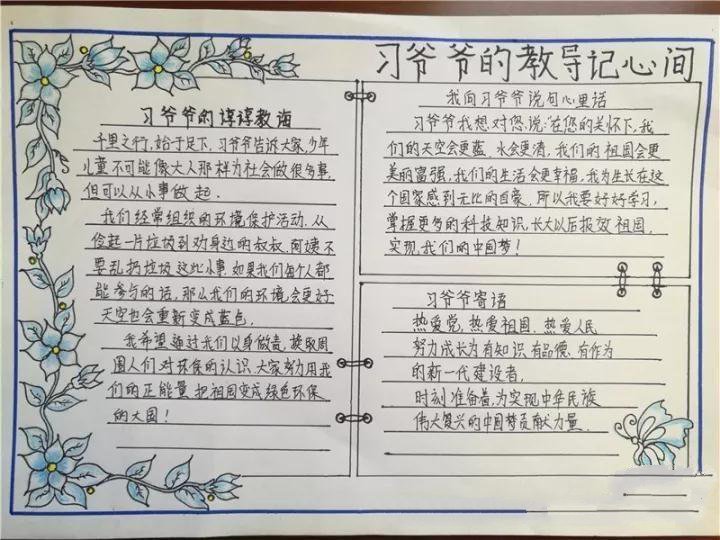 习爷爷的教导记心间
习爷爷的谆谆教诲
千里之行,始于足下,习爷爷告诉大家,少年
儿童不可能像大人那样为社会做很多事,
但可以从小事做起.
我们经常组织的环境保护活动.从
捡起一片垃圾到劝身边的叔叔.阿姨不
要乱扔垃圾这些小事.如果我们每个人都
能参与的话,那么我们的环境会更好
天空也会重新变成蓝色.
我希望通过我们以身做责,换取周
围人们对环保的认识.大家努力用我
们的正能量.把祖国变成绿色环保
的大国!
我向习爷爷说句心里话
习爷爷我想对您说:“在您的关怀下,我
们的天空会更蓝.水会更清,我们的祖国会更
美丽富强,我们的生活会更幸福,我为生长在这
个国家感到无比的自豪.所以我要好好学习,
掌握更多的科技知识,长大以后报效祖国,
实现我们的中国梦!
习爷爷寄语
热爱党,热爱祖国.热爱人民
努力成长为有知识.有品德.有作为
的新一代建设者,
时刻准备着,为实现中华民族
伟大复兴的中国梦贡献力量.